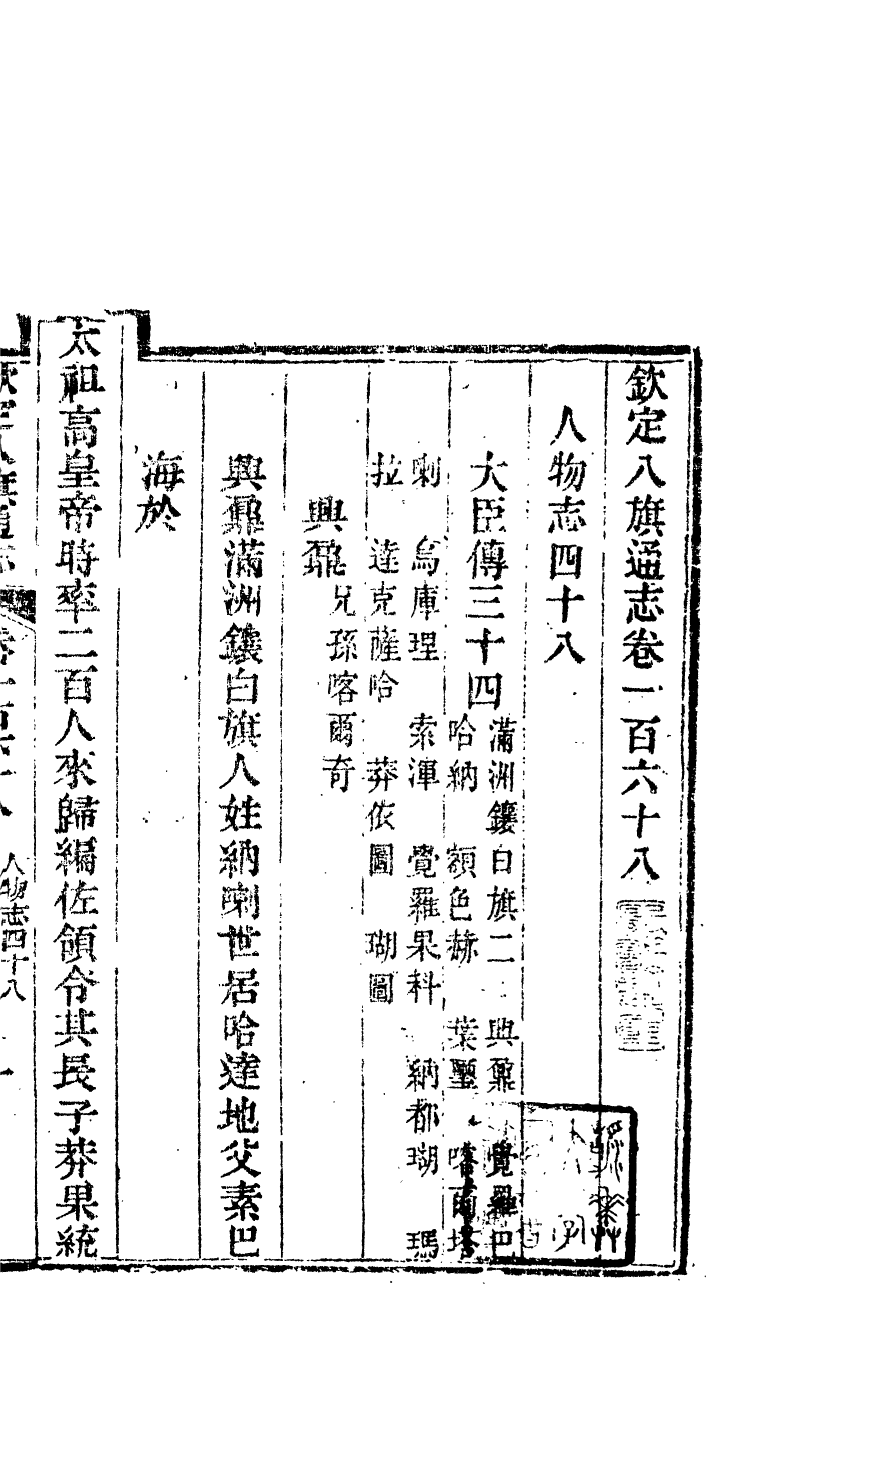 欽定八旗通志卷一百六十八
人物志四十八
大臣傳三十四 滿洲鑲白旗二 興鼐 覺羅巴
哈納 額色赫 葉璽 喀爾塔
喇 烏庫理 索渾 覺羅果科 納都瑚 瑪
拉 達克薩哈 莽依圖 瑚圖
興鼐 兄孫喀爾奇
興鼐滿洲鑲白旗人姓納喇世居哈達地父素巴
海於
太祖高皇帝時率二百人來歸編佐領令其長子莽果統
欽定八旗通志 卷一百六十八 人物志四十八 一